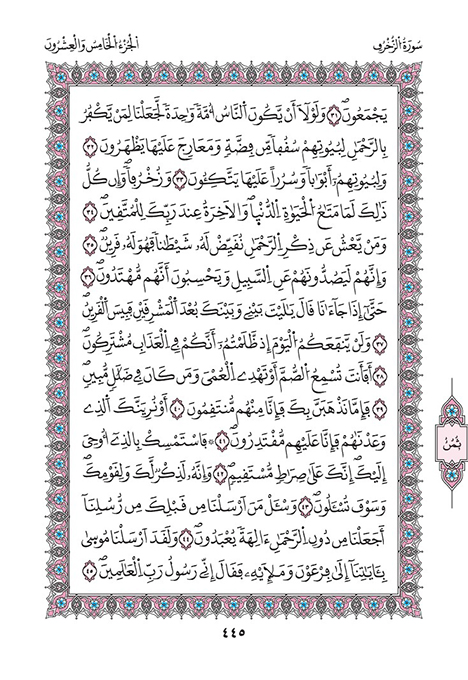 سُورَةُ الزُّخْرُفِ
الْجُزْءُ الْخَامِسُ وَالْعِشْرُونَ
يَجْمَعُونَ ٣١ وَلَوْلَا أَنْ يَّكُونَ النَّاسُ أُمَّةً وَاحِدَةً لَّجَعَلْنَا لِمَنْ يَّكْفُرُ
بِالرَّحْمَٰنِ لِبُيُوتِهِمْ سُقُفاً مِّن فِضَّةٍ وَمَعَارِجَ عَلَيْهَا يَظْهَرُونَ ٣٢
وَلِبُيُوتِهِمُۥٓ أَبْوَاباً وَسُرُراً عَلَيْهَا يَتَّكِـُٔونَ ٣٣ وَزُخْرُفاً وَإِن كُلُّ
ذَٰلِكَ لَمَا مَتَاعُ الْحَيَوٰةِ الدُّنْيَا وَالَاخِرَةُ عِندَ رَبِّكَ لِلْمُتَّقِينَ ٣٤
وَمَنْ يَّعْشُ عَن ذِكْرِ الرَّحْمَٰنِ نُقَيِّضْ لَهُۥ شَيْطَٰناً فَهُوَ لَهُۥ قَرِينٌ ٣٥
وَإِنَّهُمْ لَيَصُدُّونَهُمْ عَنِ السَّبِيلِ وَيَحْسِبُونَ أَنَّهُم مُّهْتَدُونَ ٣٦
حَتَّىٰٓ إِذَا جَآءَٰنَا قَالَ يَٰلَيْتَ بَيْنِي وَبَيْنَكَ بُعْدَ الْمَشْرِقَيْنِ فَبِيسَ الْقَرِينُ
٣٧ وَلَنْ يَّنفَعَكُمُ الْيَوْمَ إِذ ظَّلَمْتُمُۥٓ أَنَّكُمْ فِي الْعَذَابِ مُشْتَرِكُونَ
٣٨ أَفَأَنتَ تُسْمِعُ الصُّمَّ أَوْ تَهْدِي الْعُمْيَ وَمَن كَانَ فِي ضَلَٰلٍ مُّبِينٍ
٣٩ فَإِمَّا نَذْهَبَنَّ بِكَ فَإِنَّا مِنْهُم مُّنتَقِمُونَ ٤٠ أَوْ نُرِيَنَّكَ الَّذِي
وَعَدْنَٰهُمْ فَإِنَّا عَلَيْهِم مُّقْتَدِرُونَ ٤١ فَاسْتَمْسِكْ بِالَّذِي أُوحِيَ
إِلَيْكَ إِنَّكَ عَلَىٰ صِرَٰطٍ مُّسْتَقِيمٍ ٤٢ وَإِنَّهُۥ لَذِكْرٌ لَّكَ وَلِقَوْمِكَ
وَسَوْفَ تُسْـَٔلُونَ ٤٣ وَسْـَٔلْ مَنَ اَرْسَلْنَا مِن قَبْلِكَ مِن رُّسُلِنَآ
أَجَعَلْنَا مِن دُونِ الرَّحْمَٰنِ ءَالِهَةً يُعْبَدُونَ ٤٤ وَلَقَدَ اَرْسَلْنَا مُوسَىٰ
بِـَٔايَٰتِنَآ إِلَىٰ فِرْعَوْنَ وَمَلَإِيْهِۦ فَقَالَ إِنِّي رَسُولُ رَبِّ الْعَٰلَمِينَ ٤٥
ثُمُنٌ
٤٤٥